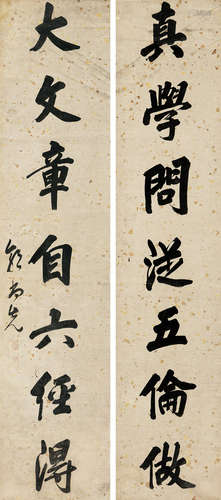 真學問從五倫做
大文章自六經得
郭尚先